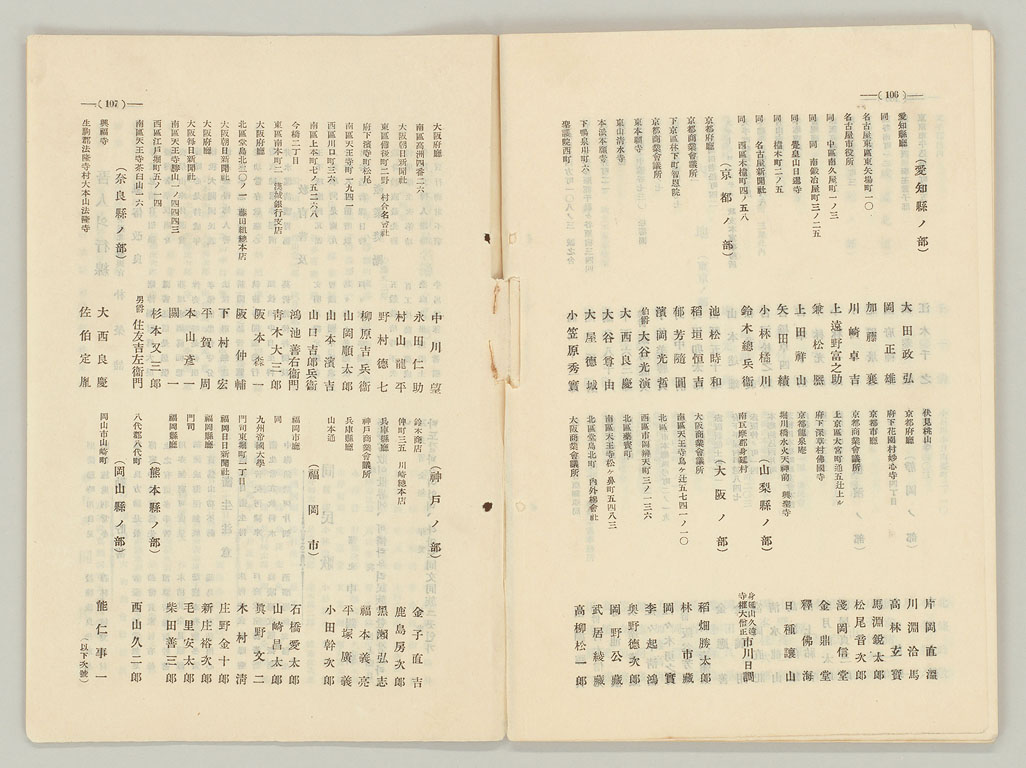 (106)
(愛知縣ノ部)
愛知縣廳 大田政弘
同 岡正雄
名古屋東區東矢場町一〇 加藤襄
名古屋市役所 川崎卓吉
同 中區南久屋町一ノ三 上遠野富之助
同 同 南鍛冶屋町三ノ二五 兼松煕
同 覺皇山日暹寺 上田祥山
同 橦木町二ノ五 矢田績
同 名古屋新聞社 小林橘川
同 西區木橦町四ノ五八 鈴木總兵衛
(京都ノ部)
京都府廳 池松時和
京都商業會議所 稻垣恒吉
下京區林下町智恩院 郁芳隨圓
京都商業會議所 濱岡光哲
東本願寺 伯爵 大谷光演
東山清水寺 大西良慶
本派本願寺 大谷尊由
下鴨泉川町六 大屋德城
聖護院西町 小笠原秀實
伏見桃山 片岡直溫
京都府廳 川淵洽馬
府下花園村妙心寺 高林玄寶
京都市廳 馬淵銳太郎
京都商業會議所 松尾音次郎
上京區大宮町通五辻上ル 淺岡信堂
府下深草村佛國寺 金月鼎堂
京都龍泉庵 釋佛海
堀川橋水火天神前 興聖寺 日種讓山
(山梨縣ノ部)
南巨摩郡身延村 身延山久遠寺權大僧正 市川日調
(大阪ノ部)
大阪商業會議所 稻畑勝太郎
南區天王寺鳥ヶ辻五七四一ノ一〇 林市藏
北區 岡實
西區市岡濱天町三ノ一三六 李起鴻
北區藥寳町 奥野德次郎
南區天王寺松ヶ鼻町五四八三 岡野公廳
北區堂島北町 內外綿會社 武居綾藏
大阪商業會議所 高柳松一郎
(107)
大阪府廳 中川望
南區高洲四番二六 永田仁助
大阪朝日新聞社 村山龍平
東區備後町二野 村合名會社 野村德七
府下濱寺町松尾 柳原吉兵衛
南區天王寺町一九四一 山岡順太郎
西區川口町三六 山本濱吉
南區上本町七ノ五二六八 山口吉郎兵衛
今橋二丁目 鴻池善右衛門
東區南本町二 漢城銀行支店 青木大三郎
大阪府廳 阪本森一
北區堂島北三〇ノ一 藤田組總本店 阪仲輔
大阪朝日新聞社 下村宏
大阪府廳 平賀周
大阪每日新聞社 本山彥一
南區天王寺勝山一ノ四四四三 關一
西區江戶堀町五ノ一四 杉本又三郎
南區天王寺茶臼山一六 男爵 住友吉左衛門
(奈良縣ノ部)
興福寺 大西良慶
生駒郡法隆寺村大本山法隆寺 佐伯定胤
(神戶ノ部)
鈴木商店 金子直吉
俥町三五 川崎總本店 鹿島房次郎
兵庫縣廳 黑瀨弘志
神戶商業會議所 福本義亮
兵庫縣廳 平塚廣義
山本通 小田幹次郎
(福岡市)
福岡市廳 石橋愛太郎
同 山崎昌太郎
九州帝國大學 眞野文二
門司東堀町一丁目 木村淸
福岡日日新聞社 庄野金十郎
福岡縣廳 新庄裕次郎
門司 毛里安太郎
福岡縣廳 柴田善三郎
(熊本縣ノ部)
八代郡八代町 西山久二郎
(岡山縣ノ部)
岡山市山崎町 能仁事一
(以下次號)